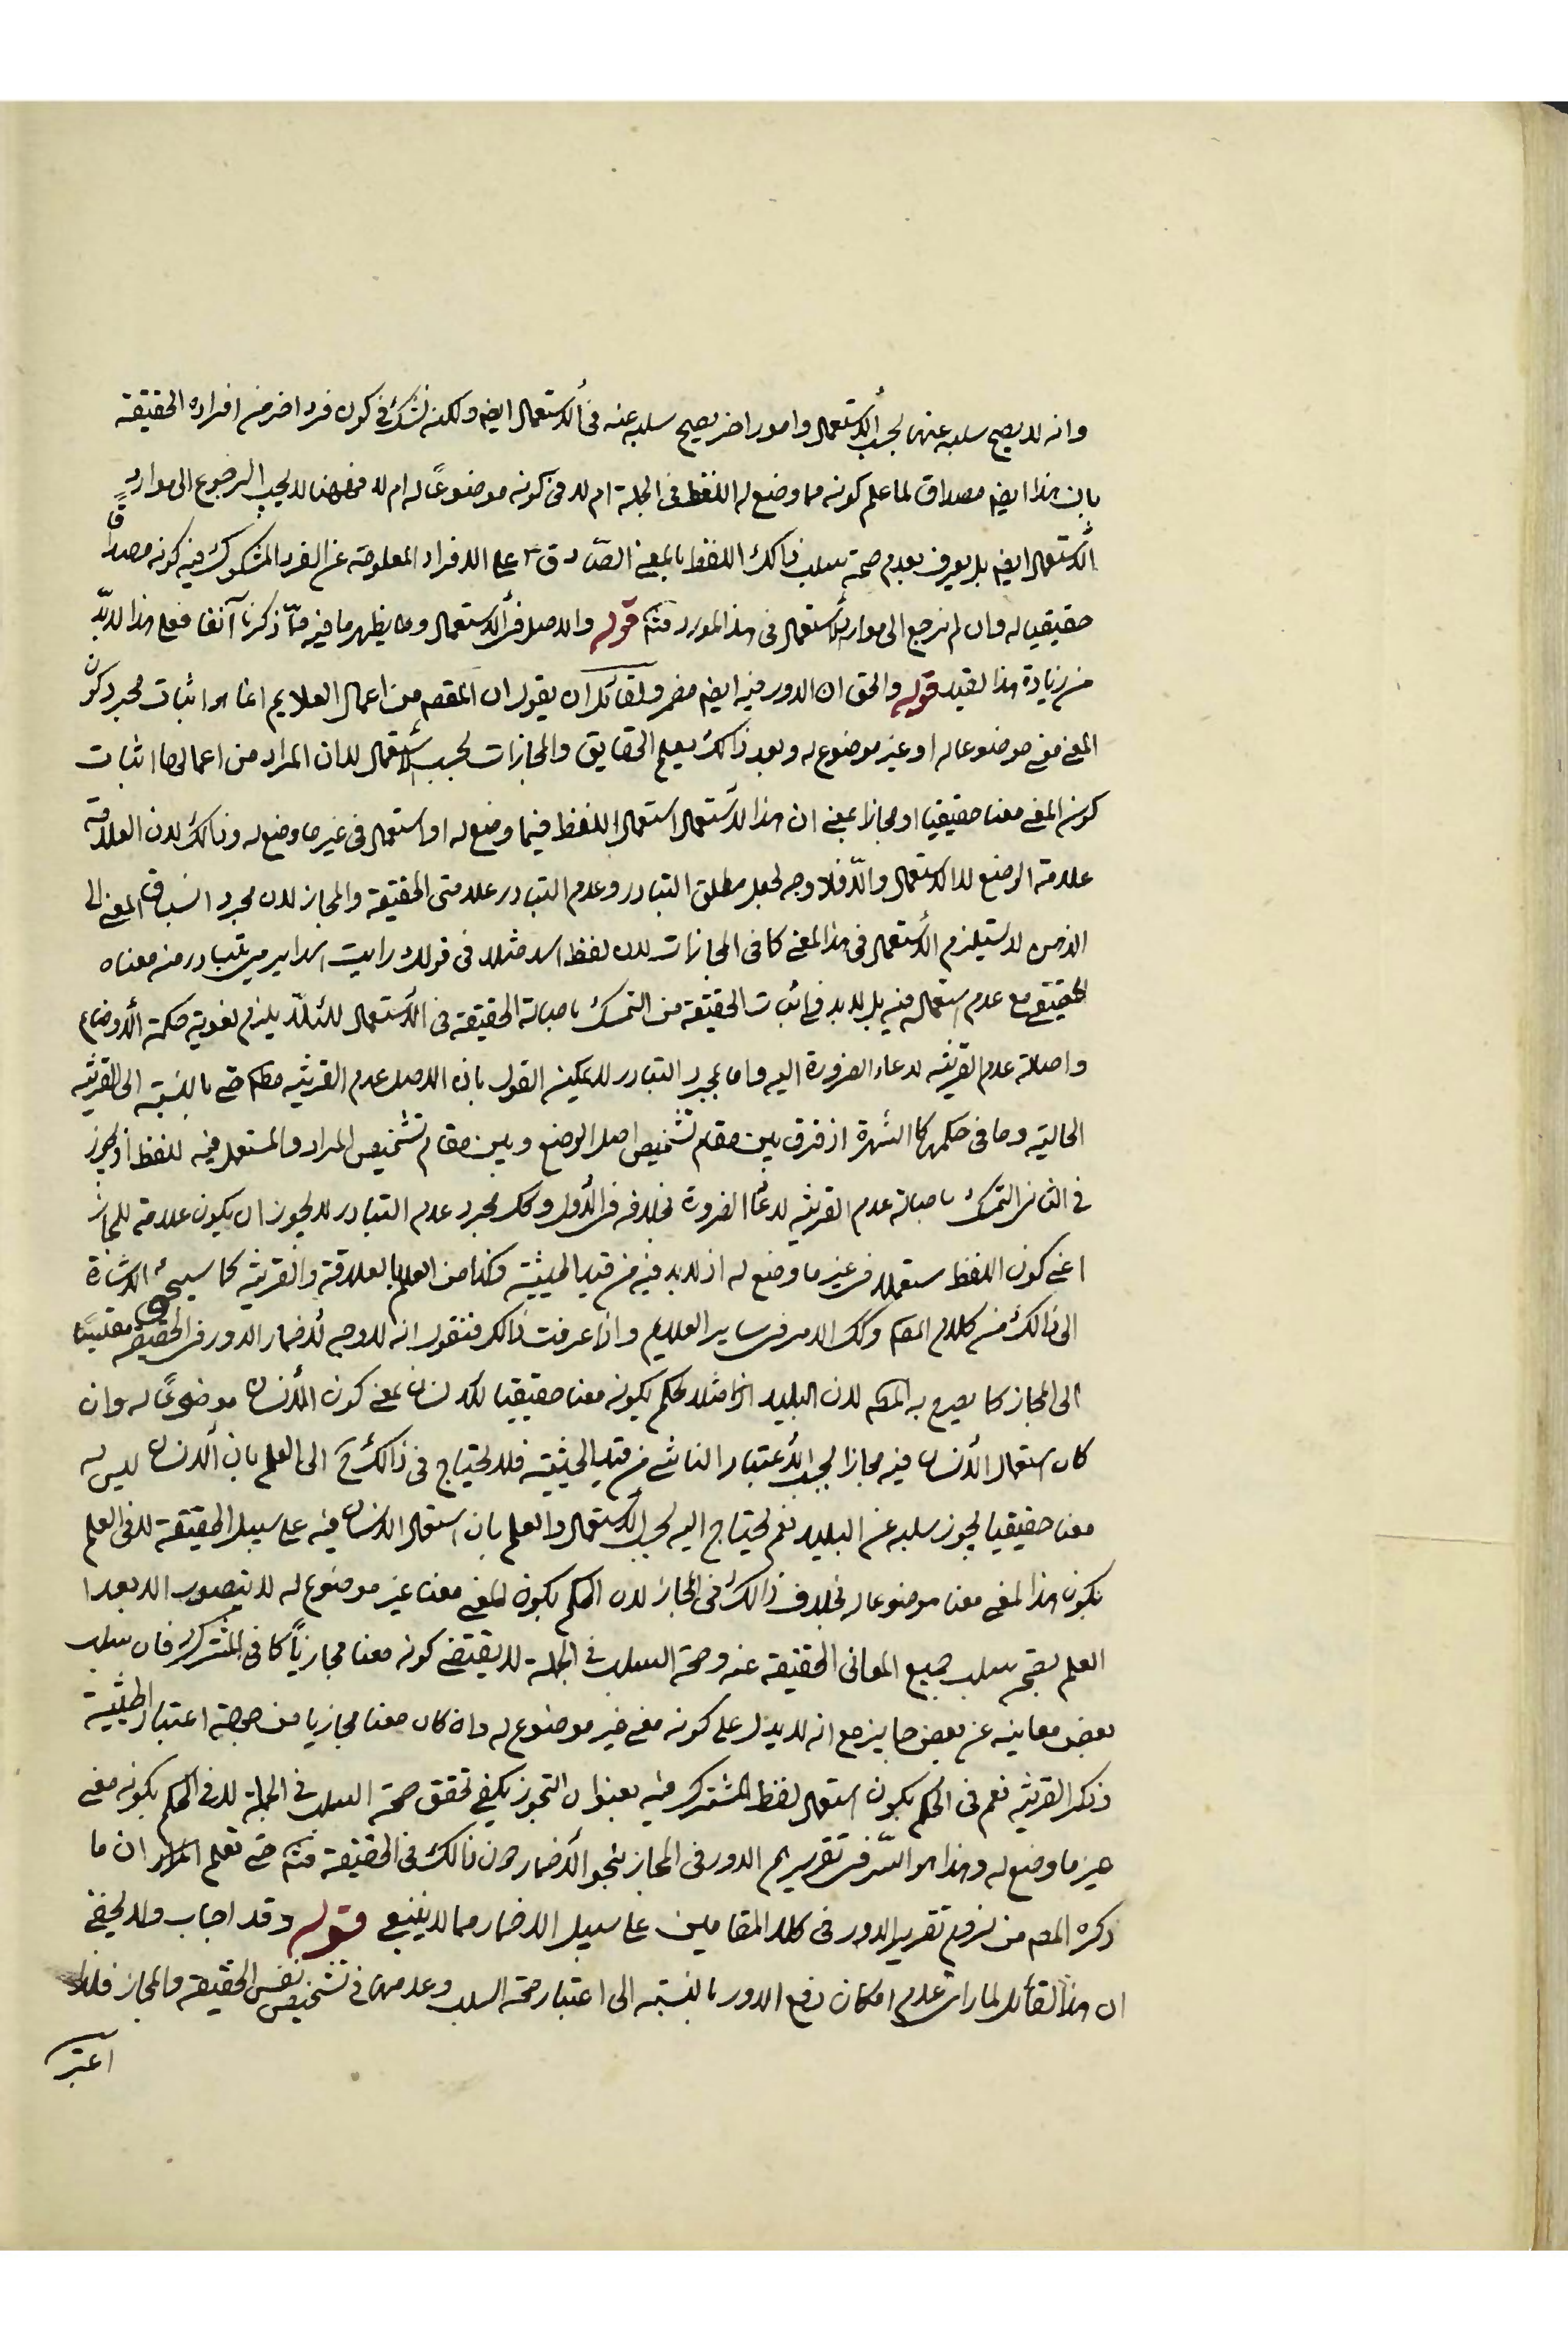 وانه لا يصح سلبه عنها بحسب الاستعمال وامور اخر يصح سلبه عنه في الاستعمال ايضم ولكنه نشك في كون فرد اخر من افراده الحقيقة
بان هذا ايضم مصداق لما علم كونه مما وضع له اللفظ في الجلة ام لا في كونه موضوعًا له ام لا فههنا لا يجب الرجوع الى موارد
الاستعمال ايضم بل يعرف بعدم صحة سلب ذالك اللفظ بالمعنى الصّادق على الافراد المعلومة عن الفرد المشكوك فيه كونه مصداقًا
حقيقيا له وان لم نرجع الى موارد الاستعمال في هذا المورد فتم قوله والاصل في الاستعمال وما يظهر ما فيه ممّا ذكرنا آنفا فعلى هذا لا بدّ
من زيادة هذا لقيد قوله والحق ان الدور فيه ايضم مضمر ولقائل ان يقول ان المقصم من اعمال العلايم انما هو اثبات مجرد كون
المعنى معنى موضوعا له او غير موضوع له وبعد ذالك يعلم الحقايق والمجازات بحسب الاستعمال لا ان المراد من اعمالها اثبات
كون المعنى معنا حقيقيا او مجازا بمعنى ان هذا الاستعمال استعمال اللفظ فيما وضع له او استعمال في غير ما وضع له وذالك لان العلاقة
علامة الوضع لا الاستعمال والّا فلا وجه لجعل مطلق التبادر وعدم التبادر علامتى الحقيقة والمجاز لان مجرد انسباق المعنى الى
الذهن لا يستلزم الاستعمال في هذا المعنى كما فى المجازات لان لفظ اسد مثلا في قولك رايت اسدا يرمى يتبادر منه معناه
الحقيقى مع عدم استعماله فيه بل لا بد في اثبات الحقيقة من التمسك باصالة الحقيقة في الاستعمال لئلّا يلزم لغوية حكمة الاوضاع
واصالة عدم القرينه لدعاء الضرورة اليه واما بمجرد التبادر لا يمكن القول بان الاصل عدم القرينه مطم حتى بالنسبة الى القرينه
الحالية وما فى حكمها كالشهرة اذ فرق بين مقام تشخيص اصل الوضع وبين مقام تشخيص المراد والمستعمل فيه للفظ اذ يجوز
في الثانى التمسك باصالة عدم القرينه لدعاء الضرورة بخلافه في الاول وكك بمجرد عدم التبادر لا يجوز ان يكون علامة للمجاز
اعنى كون اللفظ مستعملا في غير ما وضع له اذ لا بد فيه من قيد الحيثية وكذا من العلم بالعلاقة والقرينة كما سيجئ الاشارة
الى ذالك من كلام المصم وكك الامر فى ساير العلايم واذا عرفت ذالك فنقول انه لا وجه لاضمار الدور في الحقيقه مقليسًا
الى المجاز كما يصرح به المصم لان البليد اذا مثلا يحكم بكونه معنا حقيقيا للانسان بمعنى كون الانسان موضوعًا له وان
كان استعمال الانسان فيه مجازا بحسب الاعتبار الناشى من قيد الحيثية فلا يحتاج في ذالك ح الى العلم بان الانسان ليس له
معنا حقيقيا يجوز سلبه عن البليد نعم يحتاج اليه بحسب الاستعمال والعلم بان استعمال الانسان فيه على سبيل الحقيقة لا في العلم
بكون هذا المعنى معنا موضوعا له بخلاف ذالك في المجاز لان الحكم بكون المعنى معنا غير موضوع له لا يتصور الا بعد ا
العلم بصحة سلب جميع المعانى الحقيقة عنه وصحة السلب في الجلة لا يقتضى كونه معنا مجازيًا كما في المشترك فان سلب
بعض معانيه عن بعض جايز مع انه لا يدل على كونه معنى غير موضوع له وان كان معنا مجازيا من جهة اعتبار الحيثية
وذكر القرينه نعم فى الحكم بكون استعمال لفظ المشترك فيه بعنوان التجوز يكفى تحقق صحة السلب فى الجلة لا فى الحكم بكونه معنى
غير ما وضع له وهذا هو السّر في تقريرهم الدور فى المجاز بنحو الاضمار دون ذالك في الحقيقة فتم حتى تعلم المراد ان ما
ذكره المصم من لزوم تقرير الدور فى كلا المقامين على سبيل الاضمار مما لا ينبغى قوله وقد اجاب ولا يخفى
ان هذا لقائل لما راى عدم امكان دفع الدور بالنسبة الى اعتبار صحة السلب وعدمها في تشخيص نفس الحقيقه والمجاز فلذا
اعتبر